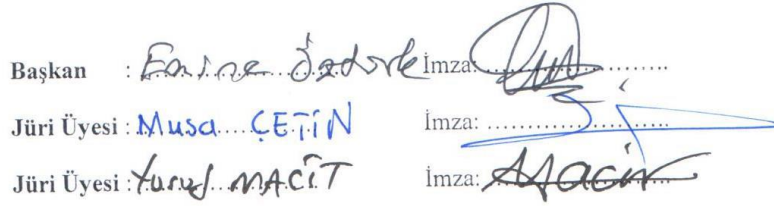 Başkan : Emine Öztürk İmza:
Jüri Üyesi : Musa ÇETİN İmza:
Jüri Üyesi : Yusuf MACİT İmza: